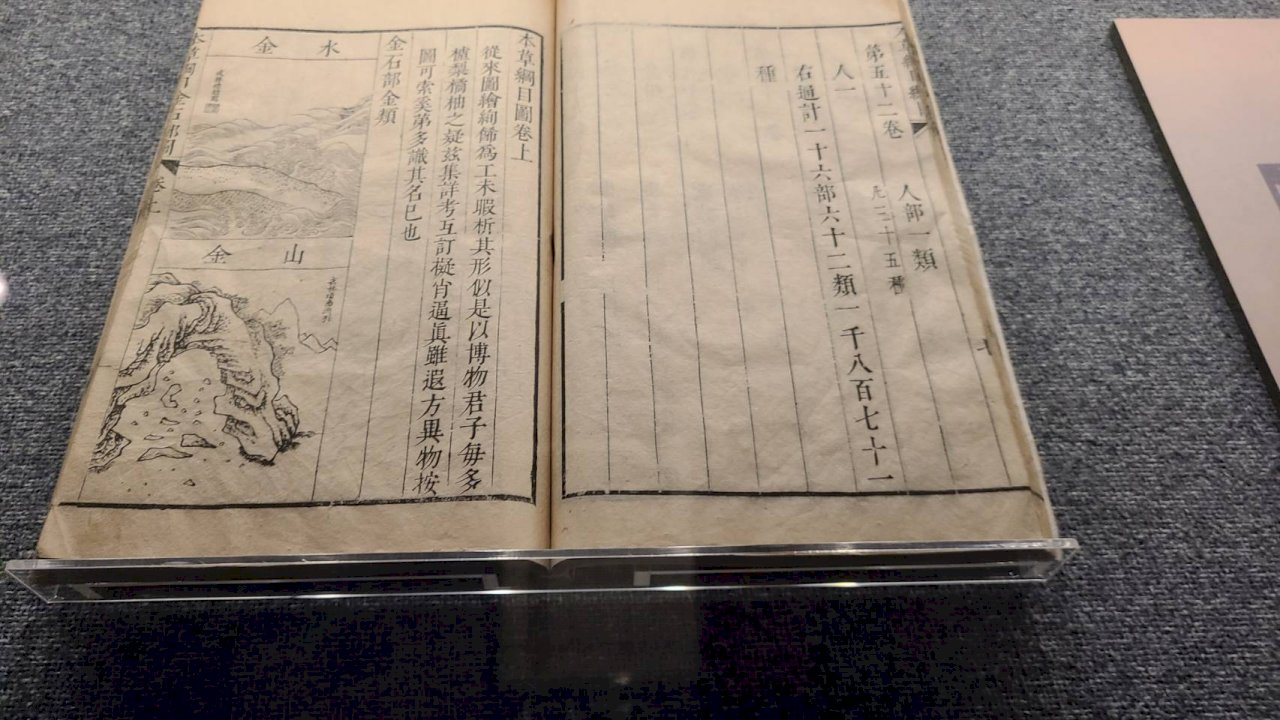 第五十二卷
人部一類
人一
凡三十五種
右通計一十六部六十二類一千八百七十一
種
本草綱目圖卷上
從來圖繪絢飾為工未暇析其形似是以博物君子每多
櫨梨橘柚之疑茲集詳考互訂擬肖逼眞雖遐方異物按
圖可索奚第多識其名已也
金石部金類
水金
山金